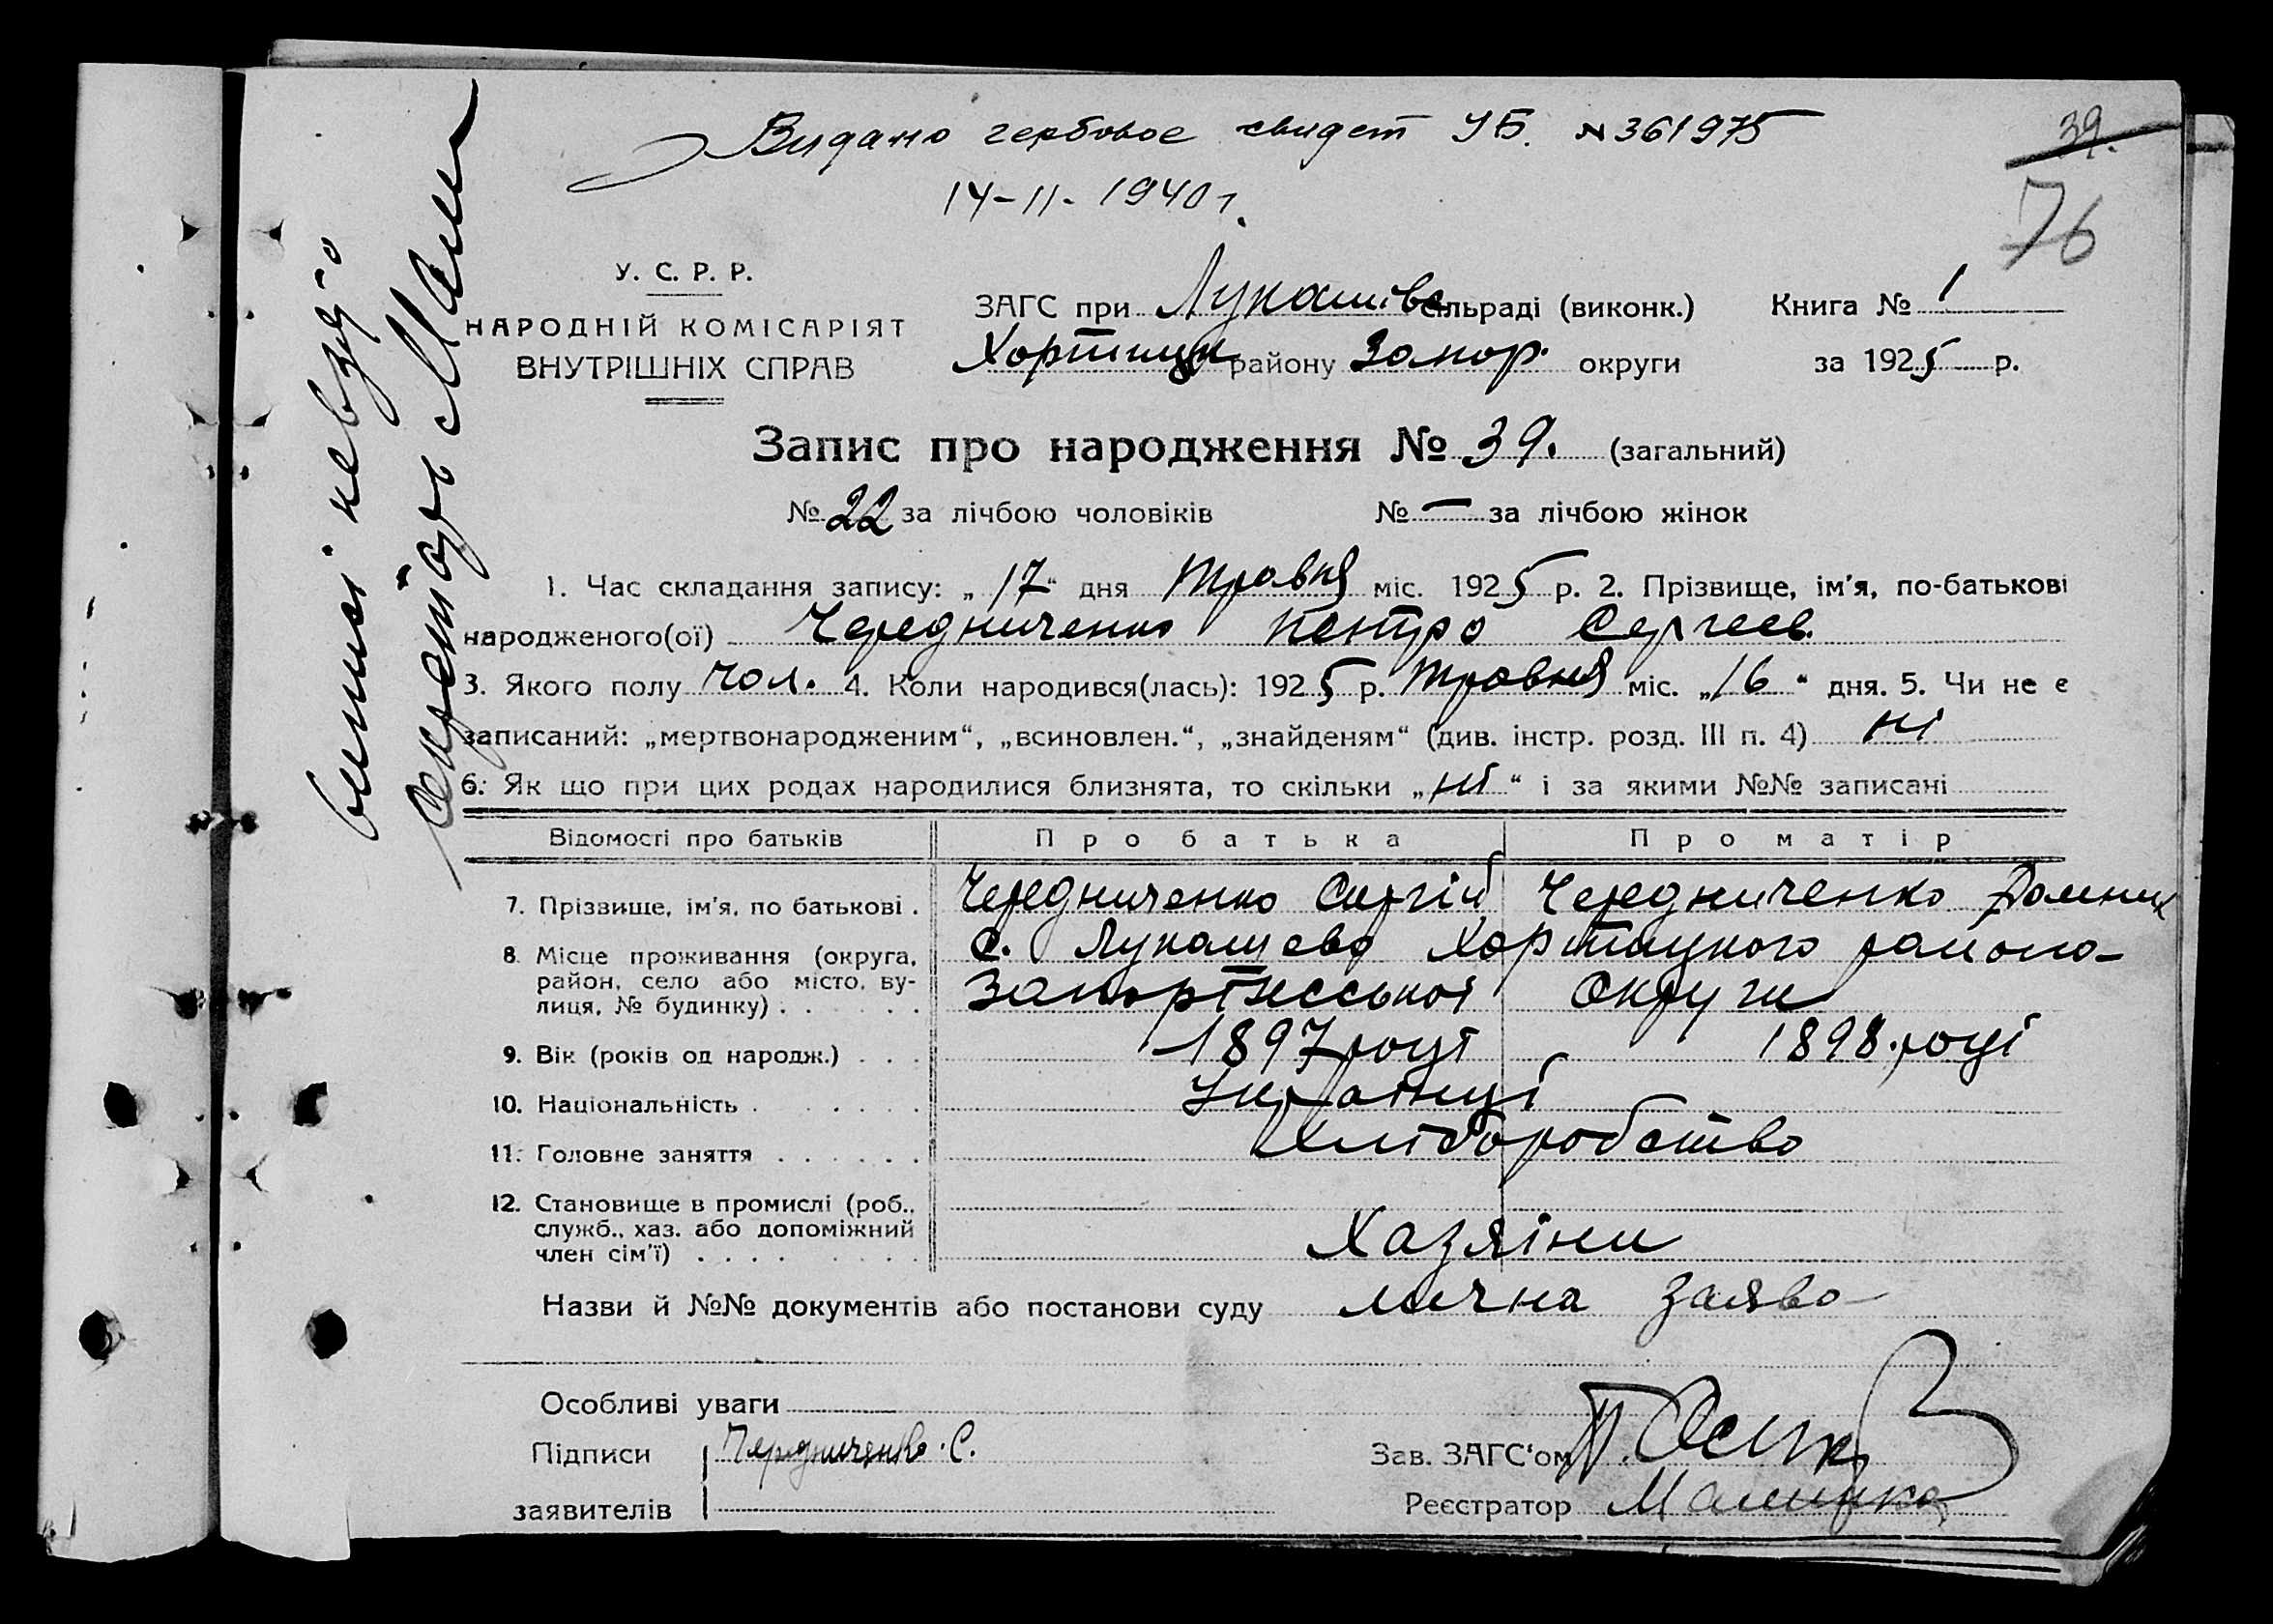 Видано гербовое свидет УБ. № 361975
14-11-1940 г.
39.
76
У. С. Р. Р.
НАРОДНІЙ КОМІСАРІЯТ
ВНУТРІШНІХ СПРАВ
ЗАГС при Лукашівс сільраді (виконк.) Книга № 1
Хортицьк району Запор. округи за 1925 р.
Запис про народження № 39. (загальний)
№ 22 за лічбою чоловіків № — за лічбою жінок
1. Час складання запису: „17“ дня травня міс. 1925 р. 2. Прізвище, ім'я, по-батькові
народженого(ої) Чередниченко Сергеев.
3. Якого полу чол. 4. Коли народився(лась): 1925 р. травня міс. „16“ дня. 5. Чи не є
записаний: „мертвонародженим“, „всиновлен.“, „знайденям“ (див. інстр. розд. III п. 4) ні
6. Як що при цих родах народилися близнята, то скільки „ні“ і за якими №№ записані
Відомості про батьків Про батька Про матір
7. Прізвище, ім'я, по батькові . Чередниченко Сергій Чередниченко
8. Місце проживання (округа, район, село або місто, ву-лиця, № будинку) . . . . . . с. Лукашево Хортицкого району
округи
9. Вік (років од народж.) . . . 1897 року 1898. році
10. Національність . . . . . . Українці
11. Головне заняття . . . . . . Хліборобство
12. Становище в промислі (роб., служб., хаз. або допоміжний член сім'ї) . . . . . . . . Хазяіни
Назви й №№ документів або постанови суду лична заява
Особливі уваги
Підписи Чередниченко. С.
заявителів
Зав. ЗАГС'ом
Реєстратор